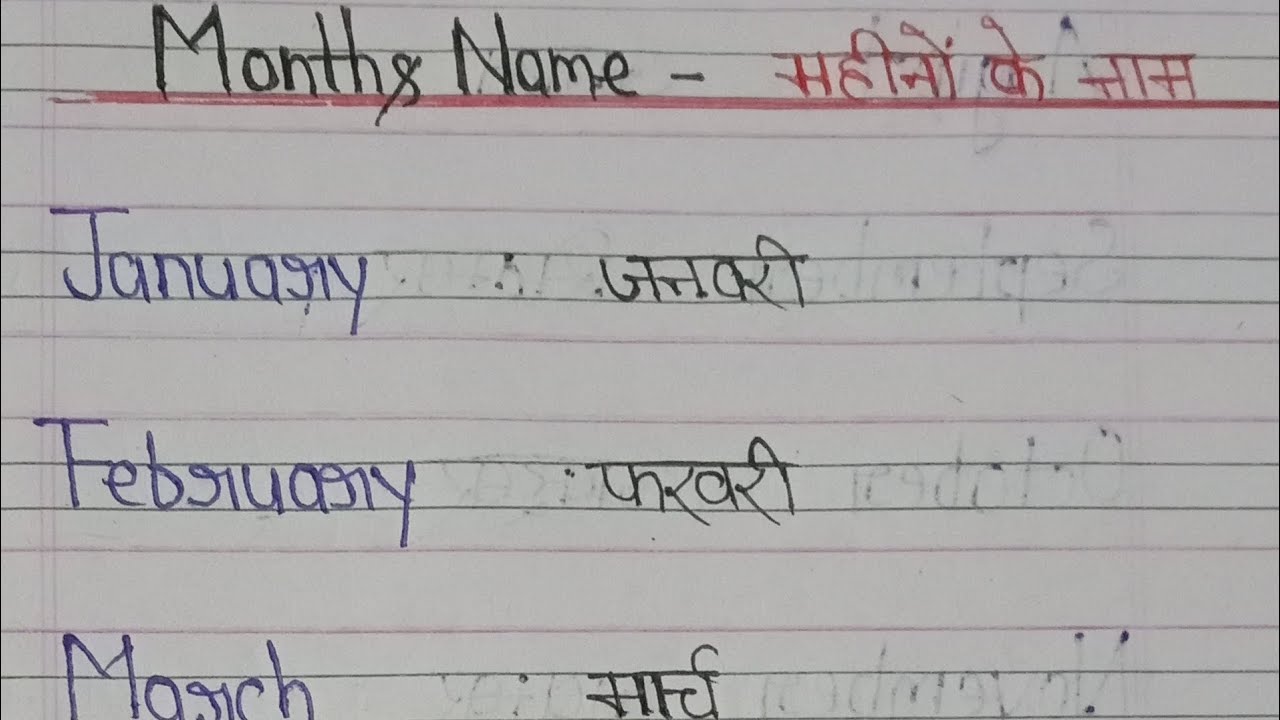 Months Name - महीनों के नाम
January : जनवरी
February : फरवरी
March : मार्च